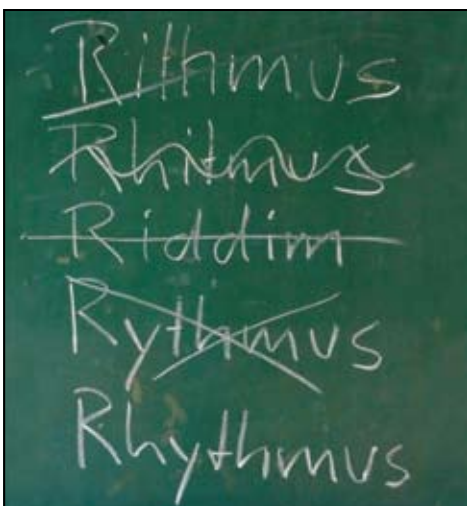 Rithmus
Rhitmus
Riddim
Rythmus
Rhythmus